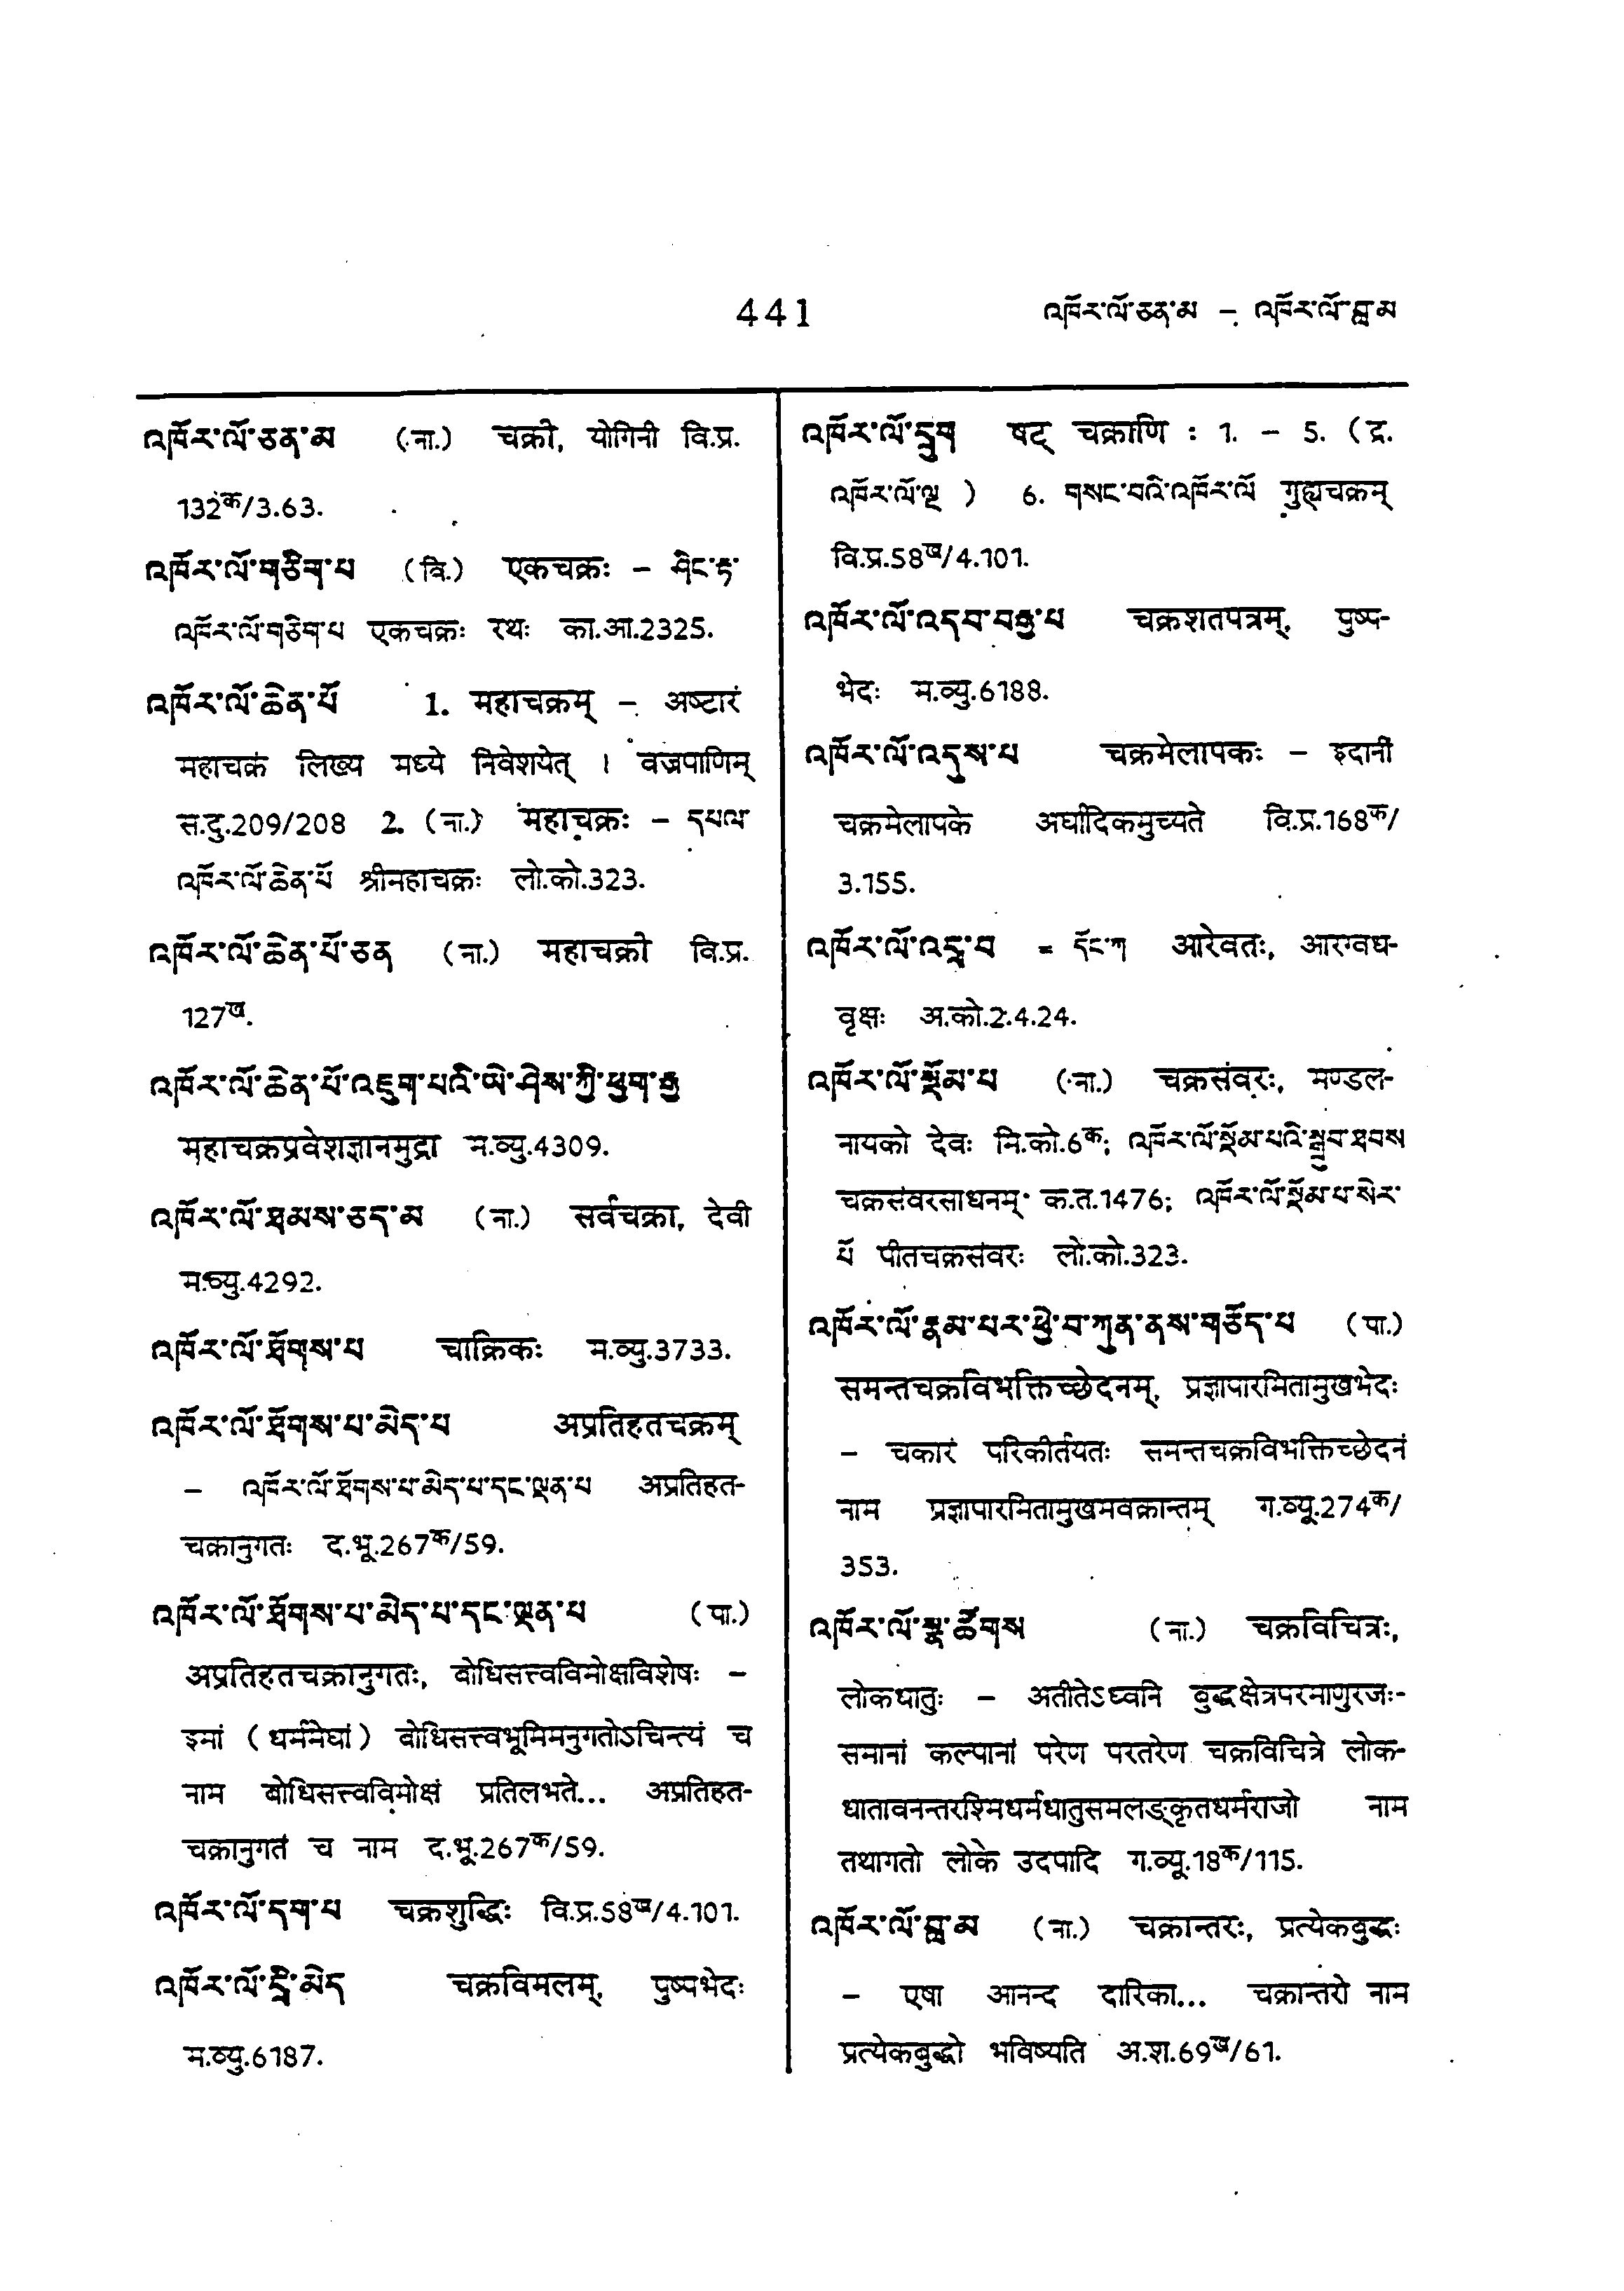 441
འཁོར་ལོ་ཅན་མ – འཁོར་ལོ་བླ་མ
འཁོར་ལོ་ཅན་མ (ना.) चक्री, योगिनी वि.प्र.
132क/3.63.
འཁོར་ལོ་གཅིག་པ (वि.) एकचक्रः – ཤིང་རྟ་
འཁོར་ལོ་གཅིག་པ एकचक्रः रथः का.आ.2325.
འཁོར་ལོ་ཆེན་པོ 1. महाचक्रम् – अष्टारं
महाचक्रं लिख्य मध्ये निवेशयेत् । वज्रपाणिम्
स.दु.209/208 2. (ना.) महाचक्रः – དཔལ་
འཁོར་ལོ་ཆེན་པོ श्रीमहाचक्रः लो.को.323.
འཁོར་ལོ་ཆེན་པོ་ཅན (ना.) महाचक्री वि.प्र.
127ख.
འཁོར་ལོ་ཆེན་པོ་འཇུག་པའི་ཡེ་ཤེས་ཀྱི་ཕྱག་རྒྱ
महाचक्रप्रवेशज्ञानमुद्रा म.व्यु.4309.
འཁོར་ལོ་ཐམས་ཅད་མ (ना.) सर्वचक्रा, देवी
म.व्यु.4292.
འཁོར་ལོ་ཐོགས་པ चाक्रिकः म.व्यु.3733.
འཁོར་ལོ་ཐོགས་པ་མེད་པ अप्रतिहतचक्रम्
– འཁོར་ལོ་ཐོགས་པ་མེད་པ་དང་ལྡན་པ अप्रतिहत-
चक्रानुगतः द.भू.267क/59.
འཁོར་ལོ་ཐོགས་པ་མེད་པ་དང་ལྡན་པ (पा.)
अप्रतिहतचक्रानुगतः, बोधिसत्त्वविमोक्षविशेषः –
इमां (धर्ममेघां) बोधिसत्त्वभूमिमनुगतोऽचिन्त्यं च
नाम बोधिसत्त्वविमोक्षं प्रतिलभते... अप्रतिहत-
चक्रानुगतं च नाम द.भू.267क/59.
འཁོར་ལོ་དག་པ चक्रशुद्धिः वि.प्र.58ख/4.101.
འཁོར་ལོ་དྲི་མེད चक्रविमलम्, पुष्पभेदः
म.व्यु.6187.
འཁོར་ལོ་དྲུག षट् चक्राणि : 1. – 5. (द्र.
འཁོར་ལོ་ལྔ ) 6. གསང་བའི་འཁོར་ལོ गुह्यचक्रम्
वि.प्र.58ख/4.101.
འཁོར་ལོ་འདབ་བརྒྱ་པ चक्रशतपत्रम्, पुष्प-
भेदः म.व्यु.6188.
འཁོར་ལོ་འདུས་པ चक्रमेलापकः – इदानीं
चक्रमेलापके अर्घादिकमुच्यते वि.प्र.168क/
3.155.
འཁོར་ལོ་འདྲ་བ = དོང་ཀ आरेवतः, आरग्वध-
वृक्षः अ.को.2.4.24.
འཁོར་ལོ་སྡོམ་པ (ना.) चक्रसंवरः, मण्डल-
नायको देवः मि.को.6क; འཁོར་ལོ་སྡོམ་པའི་སྒྲུབ་ཐབས
चक्रसंवरसाधनम् क.त.1476; འཁོར་ལོ་སྡོམ་པ་སེར་
པོ पीतचक्रसंवरः लो.को.323.
འཁོར་ལོ་རྣམ་པར་ཕྱེ་བ་ཀུན་ནས་གཅོད་པ (पा.)
समन्तचक्रविभक्तिच्छेदनम्, प्रज्ञापारमितामुखभेदः
– चकारं परिकीर्तयतः समन्तचक्रविभक्तिच्छेदनं
नाम प्रज्ञापारमितामुखमवक्रान्तम् ग.व्यू.274क/
353.
འཁོར་ལོ་སྣ་ཚོགས (ना.) चक्रविचित्रः,
लोकधातुः – अतीतेऽध्वनि बुद्धक्षेत्रपरमाणुरजः-
समानां कल्पानां परेण परतरेण चक्रविचित्रे लोक-
धातावनन्तरश्मिधर्मधातुसमलङ्कृतधर्मराजो नाम
तथागतो लोके उदपादि ग.व्यू.18क/115.
འཁོར་ལོ་བླ་མ (ना.) चक्रान्तरः, प्रत्येकबुद्धः
– एषा आनन्द दारिका... चक्रान्तरो नाम
प्रत्येकबुद्धो भविष्यति अ.श.69ख/61.